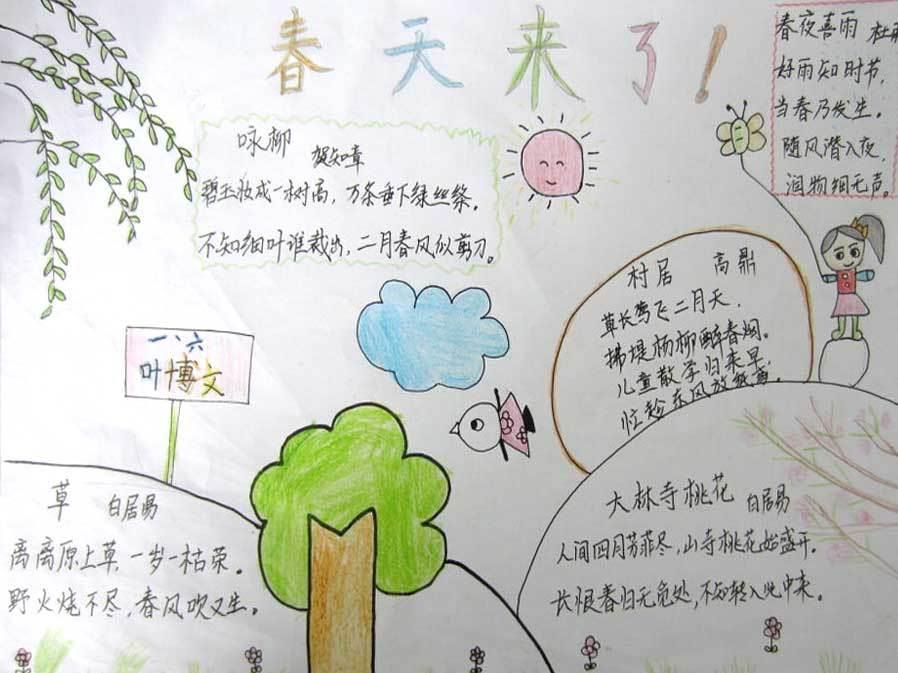 春天来了!
春夜喜雨 杜
好雨知时节,
当春乃发生。
随风潜入夜,
润物细无声。
咏柳
贺知章
碧玉妆成一树高,万条垂下绿丝绦。
不知细叶谁裁出,二月春风似剪刀。
村居 高鼎
草长莺飞二月天,
拂堤杨柳醉春烟。
儿童散学归来早,
忙趁东风放纸鸢。
一、六
叶博文
草 白居易
离离原上草,一岁一枯荣。
野火烧不尽,春风吹又生。
大林寺桃花 白居易
人间四月芳菲尽,山寺桃花始盛开。
长恨春归无觅处,不知转入此中来。